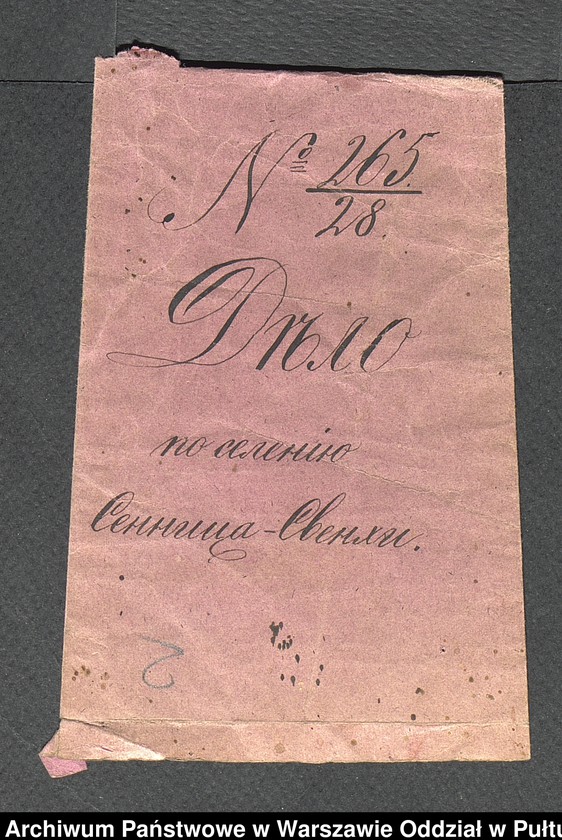 № 265.
28.
Дѣло
по селенію
Сенница-Свенхи.
2
Archiwum Państwowe w Warszawie Oddział w Pułtu